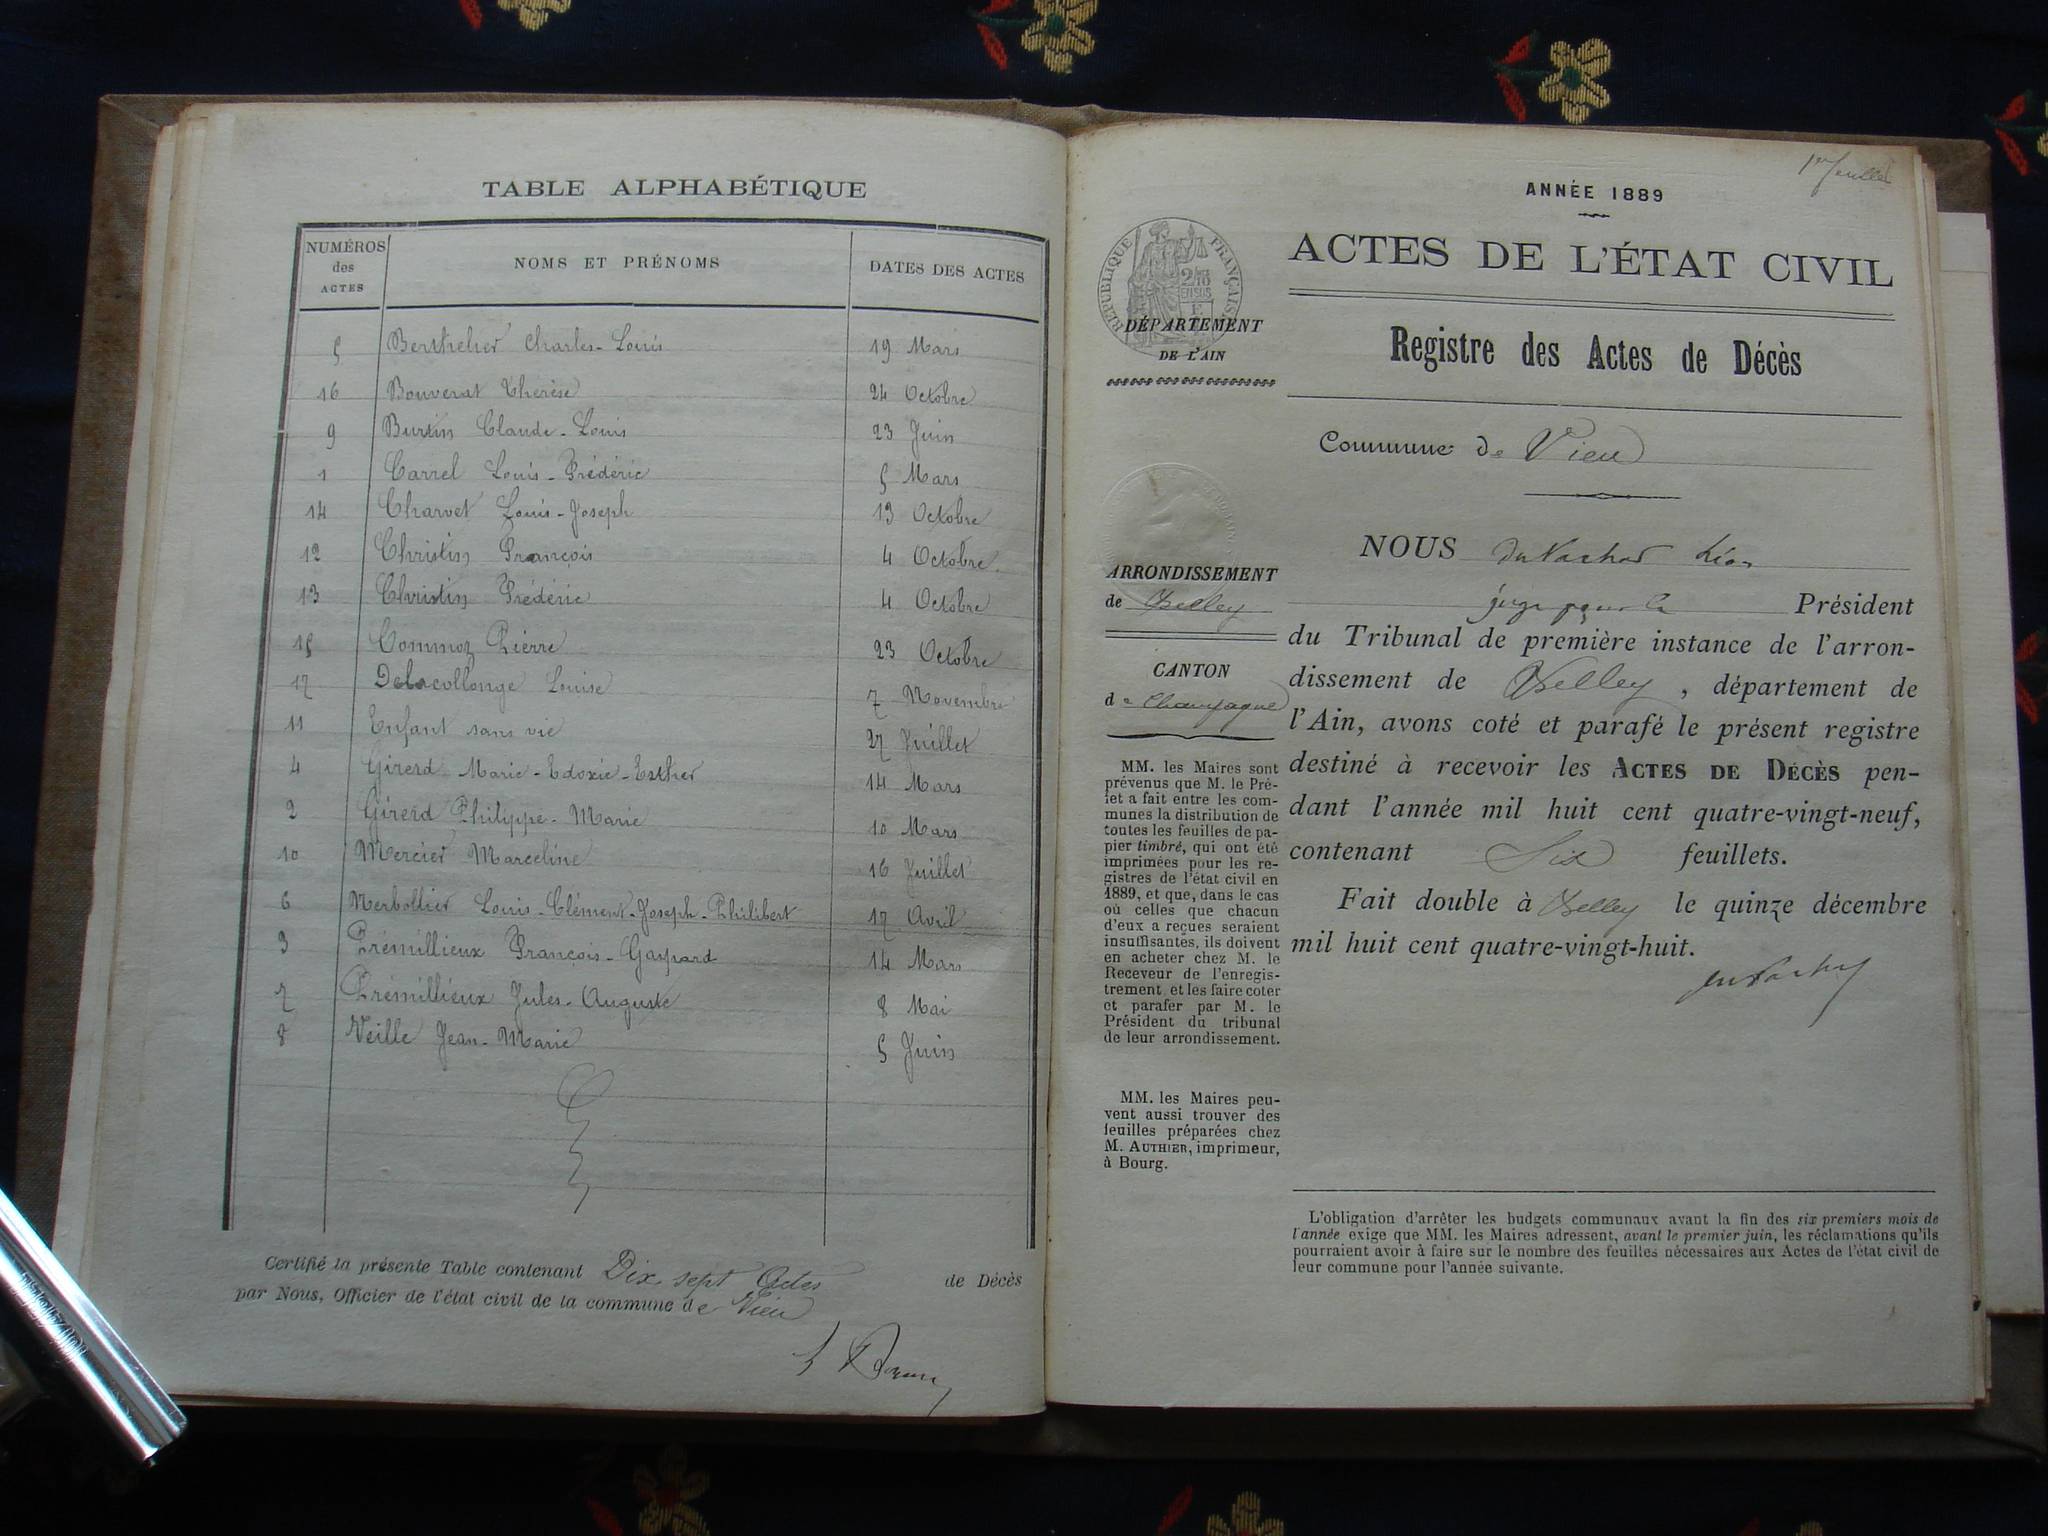 TABLE ALPHABÉTIQUE
NUMÉROS des ACTES NOMS ET PRÉNOMS DATES DES ACTES
5 Berthelier Charles-Louis 19 Mars
16 Bouverat Thérèse 24 Octobre
9 Burtin Claude-Louis 23 Juin
1 Carrel Louis-Frédéric 5 Mars
14 Charvet Louis-Joseph 13 Octobre
12 Christin François 4 Octobre
13 Christin Frédéric 4 Octobre
15 Commoz Pierre 23 Octobre
17 Delacollonge Louise 7 Novembre
11 Enfant sans vie 27 Juillet
4 Girerd Marie-Edoxie-Esther 14 Mars
2 Girerd Philippe-Marie 10 Mars
10 Mercier Marceline 16 Juillet
6 Nerbollier Louis-Clément-Joseph-Philibert 17 Avril
3 Prémillieux François-Gaspard 14 Mars
7 Prémillieux Jules-Auguste 8 Mai
8 Veille Jean-Marie 5 Juin
Certifié la présente Table contenant Dix sept Actes de Décès
par Nous, Officier de l'état civil de la commune de Vieu
1er feuillet
ANNÉE 1889
ACTES DE L'ÉTAT CIVIL
RÉPUBLIQUE FRANÇAISE
DÉPARTEMENT
DE L'AIN
Registre des Actes de Décès
Commune de Vieu
ARRONDISSEMENT
de Belley
CANTON
de Champagne
MM. les Maires sont
prévenus que M. le Pré-
fet a fait entre les com-
munes la distribution de
toutes les feuilles de pa-
pier timbré, qui ont été
imprimées pour les re-
gistres de l'état civil en
1889, et que, dans le cas
où celles que chacun
d'eux a reçues seraient
insuffisantes, ils doivent
en acheter chez M. le
Receveur de l'enregis-
trement et les faire coter
et parafer par M. le
Président du tribunal
de leur arrondissement.
MM. les Maires peu-
vent aussi trouver des
feuilles préparées chez
M. AUTHIER, imprimeur,
à Bourg.
NOUS Léon
juge pour le Président
du Tribunal de première instance de l'arron-
dissement de Belley, département de
l'Ain, avons coté et parafé le présent registre
destiné à recevoir les ACTES DE DÉCÈS pen-
dant l'année mil huit cent quatre-vingt-neuf,
contenant Six feuillets.
Fait double à Belley le quinze décembre
mil huit cent quatre-vingt-huit.
L'obligation d'arrêter les budgets communaux avant la fin des six premiers mois de
l'année exige que MM. les Maires adressent, avant le premier juin, les réclamations qu'ils
pourraient avoir à faire sur le nombre des feuilles nécessaires aux Actes de l'état civil de
leur commune pour l'année suivante.